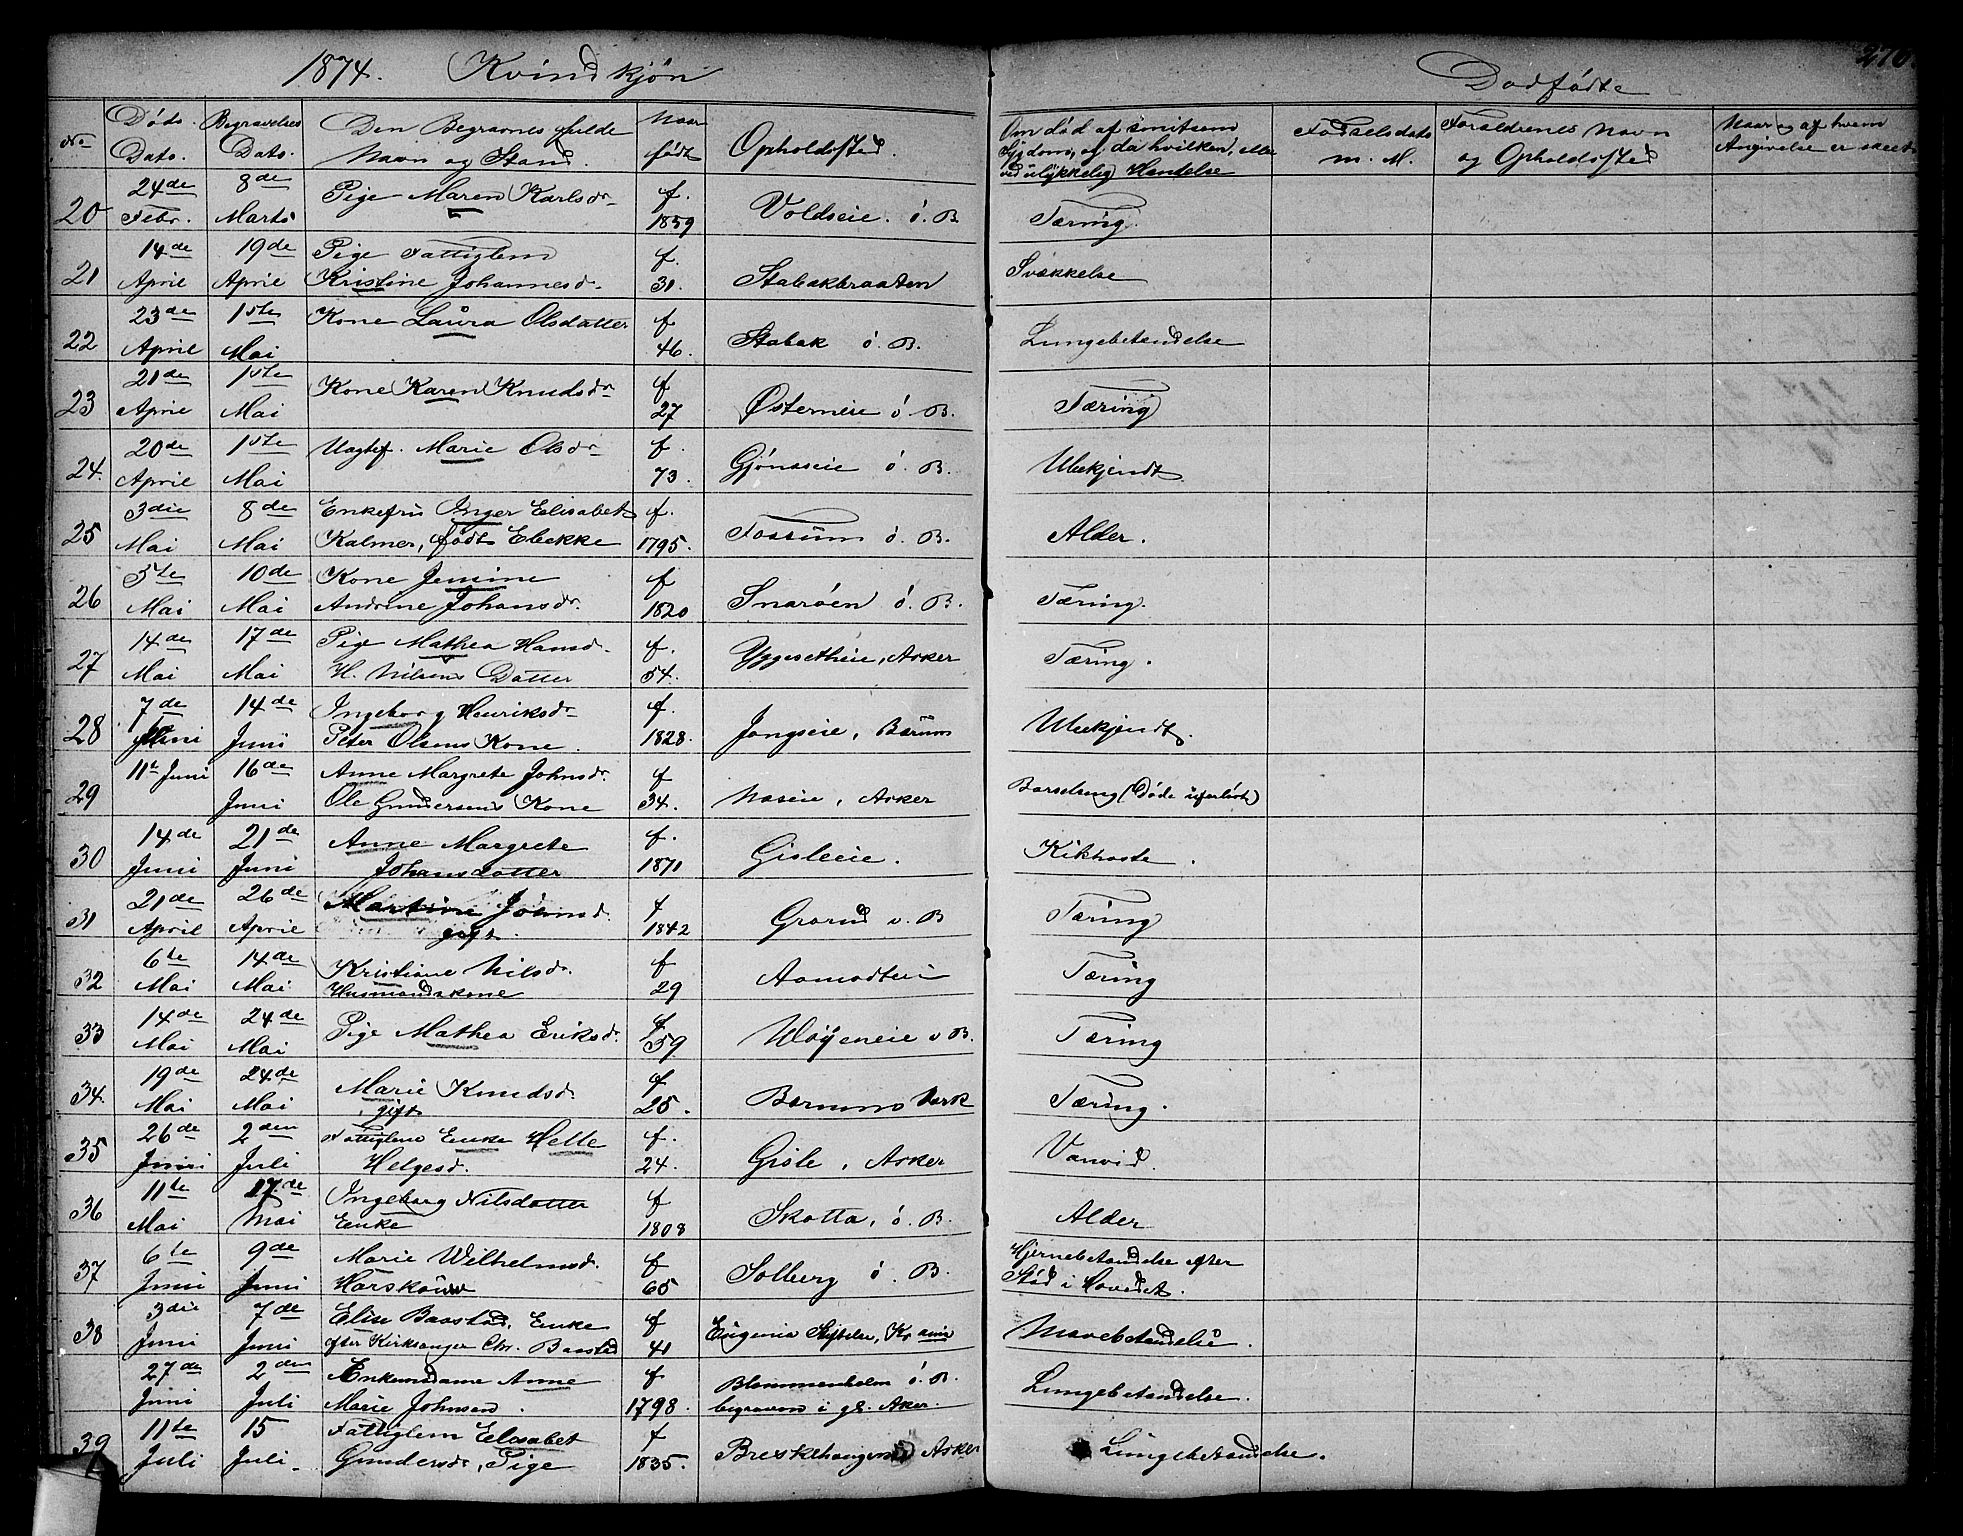 1874. Kvindkjøn
Dødfødte
No
Døds Dato.
Begravelses Dato.
Den Begravnes fulde Navn og Stand.
Naar født
Opholdssted.
Om død af smitsom Sygdom, og da hvilken, eller ved ulykkelig Hændelse
Fødselsdato m. M.
Forældrenes Navn og Opholdssted
Naar og af hvem Angivelse er skeet
20 24de Febr. 8de Marts Pige Maren Karlsdr f. 1859 Voldseie. ó. B Tæring.
21 14de April 19de April Pige Fattiglem Kristine Johannesd. f. 31. Stabækbraaten Svækkelse
22 23de April 1ste Mai Kone Laura Olsdatter f 46. Stabæk ó. B. Lungebetændelse
23 21de April 1ste Mai Kone Karen Knudsdr f 27 Østerneie ó. B. Tæring
24. 20de April 1ste Mai Ugift. Marie Olsdr f. 73. Gjønnseie ó. B. Ubekjendt
25 3die Mai 8de Mai Enkefru Inger Elisabet Kalmer, født Eliekke f. 1795. Fossum ó. B. Alder.
26 5te Mai 10de Mai Kone Jensine Andrine Johansdr. f 1820 Snarøen ó. B. Tæring.
27 14de Mai 17de Mai Pige Mathea Hansd. H. Nilsens Datter f. 54. Yggesetheie, Asker Tæring.
28 7de Juni 14de Juni Ingeborg Henriksdr Peter Olsens Kone. f. 1828. Jongseie, Bærum Ubekjendt.
29 11te Juni 16de Juni Anne Margrete Johnsdr. Ole Gundersens Kone f 34. Næseie, Asker Barselseng (Døde uforløst)
30 14de Juni 21de Juni Anne Margrete Johansdatter f. 1871 Gisleeie. Kikhoste.
31 21de April 26de April Martine Johnsd. gift. f 1842 Grorud v. B Tæring
32 6te Mai 14de Mai Kristiane Nilsdr. Husmandskone f 29 Aamodteie Tæring
33 14de Mai 24de Mai Pige Mathea Eriksd. f 59 Uløyeneie v B. Tæring
34 19de Mai 24de Mai Marie Knudsd. gift f 25. Bærums Værk Tæring.
35 26de Juni 2den Juli Fattiglem Enke Helle Helgesd. f. 24. Gisle, Asker Vanvid.
36 11te Mai 17de Mai Ingeborg Nilsdatter Enke f 1808 Skotta, ó. B. Alder
37 6te Juni 9de Juni Marie Wilhelmsd. Horskouw f 65 Solberg ó. B. Hjernebetændelse efter Stød i Hovedet.
38 3die Juni 7de Juni Elise Baastad, Enke efter Kirksanger Chr. Baasted f 41 Eugenia Stiftelse, Kr ania Mavebetændelse.
27de Juni 2den Juli Enkemadame Anne Marie Johnsen. f 1798. Blommenholm ó. B. begraven i gl. Aker. Lungebetændelse.
39 11te Juli 15 Juli. Fattiglem Elisabet Gundersdr, Pige f 1835. Asker Lungebetændelse.